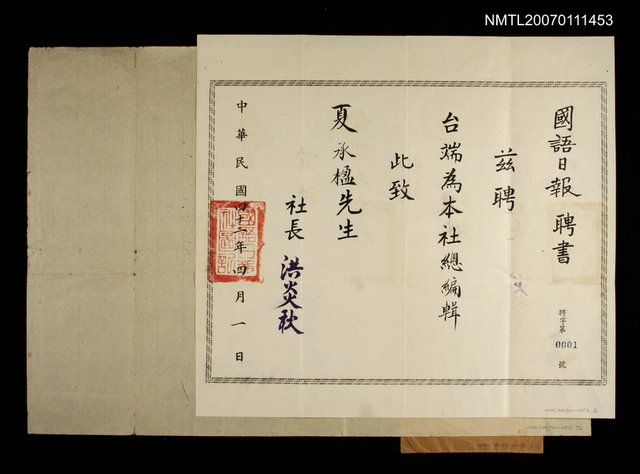 NMTL20070111453
國語日報 聘書
聘字第 0001 號
茲聘
台端為本社總編輯
此致
夏承楹先生
社長 洪炎秋
中華民國四十一年四月一日